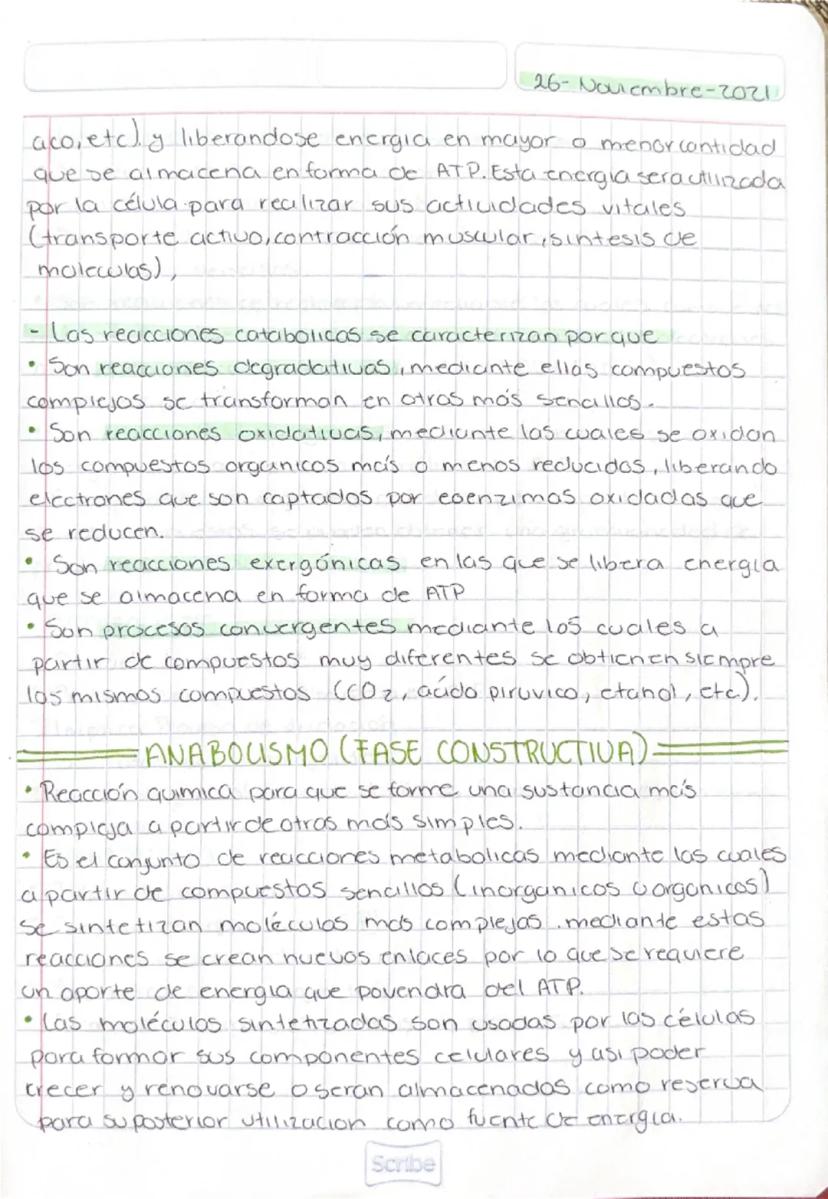 26-Noviembre-2021
aco, etc) y liberandose energia en mayor o menor cantidad
que se almacena en forma de ATP. Esta energia sera utilizada
por la célula para realizar sus actividades vitales
(transporte activo, contracción muscular, sintesis de
moleculas),
- Las reacciones catabolicas se caracterizan porque
• Son reacciones degradativas, mediante ellas compuestos
complejos se transforman en otros más sencillos.
• Son reacciones oxidativas, mediante las cuales se oxidan
los compuestos organicos más o menos reducidos, liberando
electrones que son captados por coenzimas oxidadas que
se reducen.
• Son reacciones exergónicas en las que se libera energia
que se almacena en forma de ATP
• Son procesos convergentes mediante los cuales a
partir de compuestos muy diferentes se obtienen siempre
los mismos compuestos (CO2, acido piruvico, etanol, etc).
ANABOLISMO (FASE CONSTRUCTIVA)
• Reacción quimica para que se forme una sustancia más
compleja a partir de otras mas simples.
• Es el conjunto de reacciones metabolicas mediante las cuales
a partir de compuestos sencillos (inorganicos u organicos)
se sintetizan moléculas mas complejas. mediante estas
reacciones se crean nuevos enlaces por lo que se requiere
un aporte de energia que povendra del ATP.
• Las moléculas sintetizadas son usadas por las células
para formar sus componentes celulares y asi poder
crecer y renovarse o seran almacenados como reserva
para su posterior utilizacion como fuente de energia.
Scribe